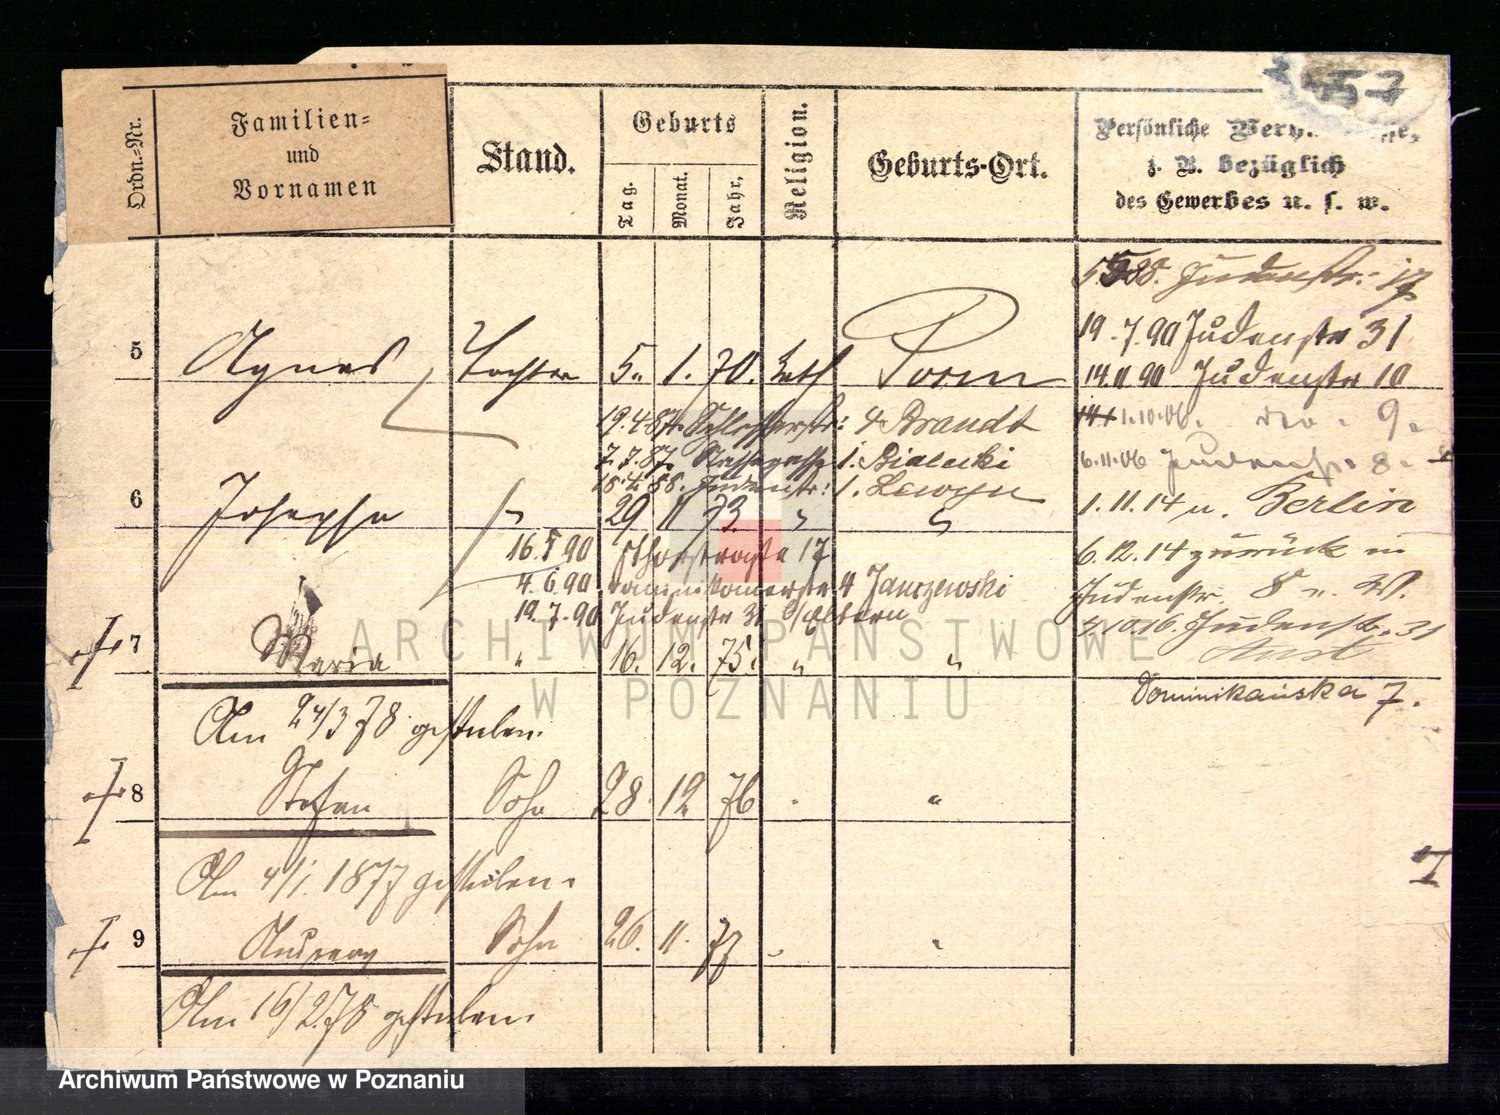 57
Ordn.-Nr.
Familien-
und
Vornamen
Stand.
Geburts
Tag.
Monat.
Jahr.
Religion.
Geburts-Ort.
Persönliche
z. B. bezüglich
des Gewerbes u. s. w.
Judenstr. 17
19.7.90 Judenstr 31
5 Agnes Tochter 5. 1. 70. kath Posen
14.11 90 Judenstr 10
19.4.87. Schlosserstr: 4 Brandt
1.10.06. 9.
7.7.87. 1. Bialecki
6.11.06 Judenstr. 8.
18.4.88. Judenstr: 1.
1.11.14 n. Berlin
6 Josepha " 29 11 73. " "
16.5 90 17
6.12.14 zurück in
4.6.90 Dominikanerstr 4 Janczewski
Judenstr. 8
19.7.90 Judenstr 31 b/Eltern
4.10.16. Judenstr. 31
7 Maria " 16. 12. 75. " "
Dominikańska 7.
Am 24/3 78 gestorben.
8 Stefan Sohn 28. 12 76 " "
Am 4/1. 1877 gestorben.
9 Andreas Sohn 26. 11. 77 " "
Am 16/2.78 gestorben.
ARCHIWUM PAŃSTWOWE
W POZNANIU
Archiwum Państwowe w Poznaniu